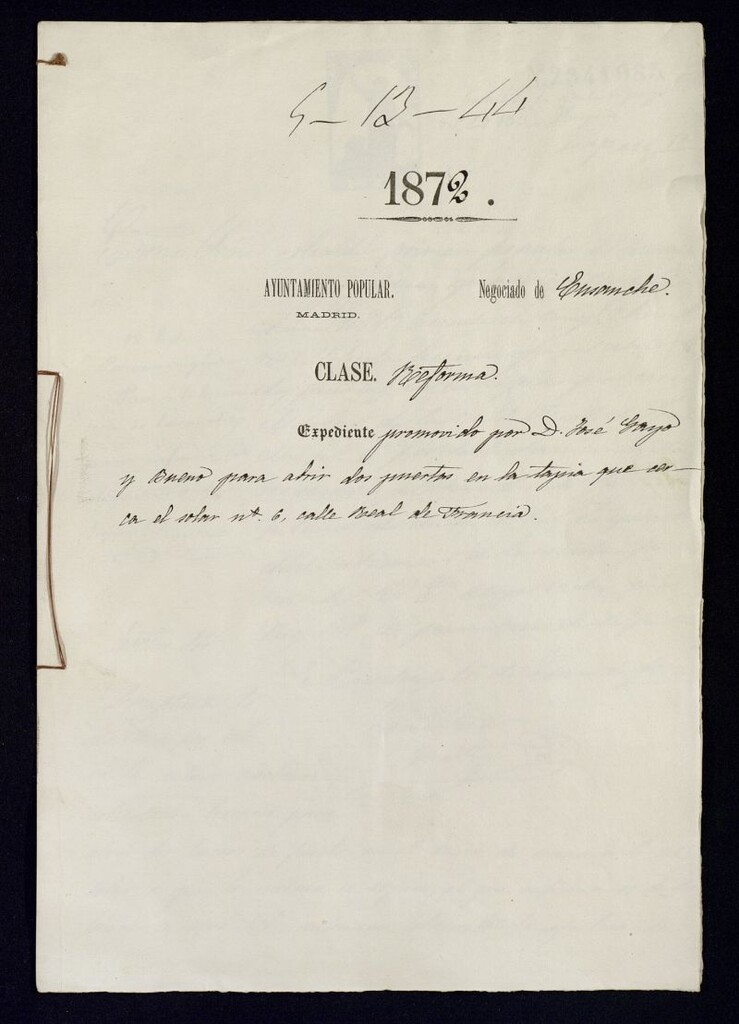 5-13-44
1872.
AYUNTAMIENTO POPULAR. Negociado de Ensanche.
MADRID.
CLASE. Reforma.
Expediente promovido por D. José Gayo
y Bueno para abrir dos puertas en la tapia que cer-
ca el solar nº. 6, calle Real de Francia.